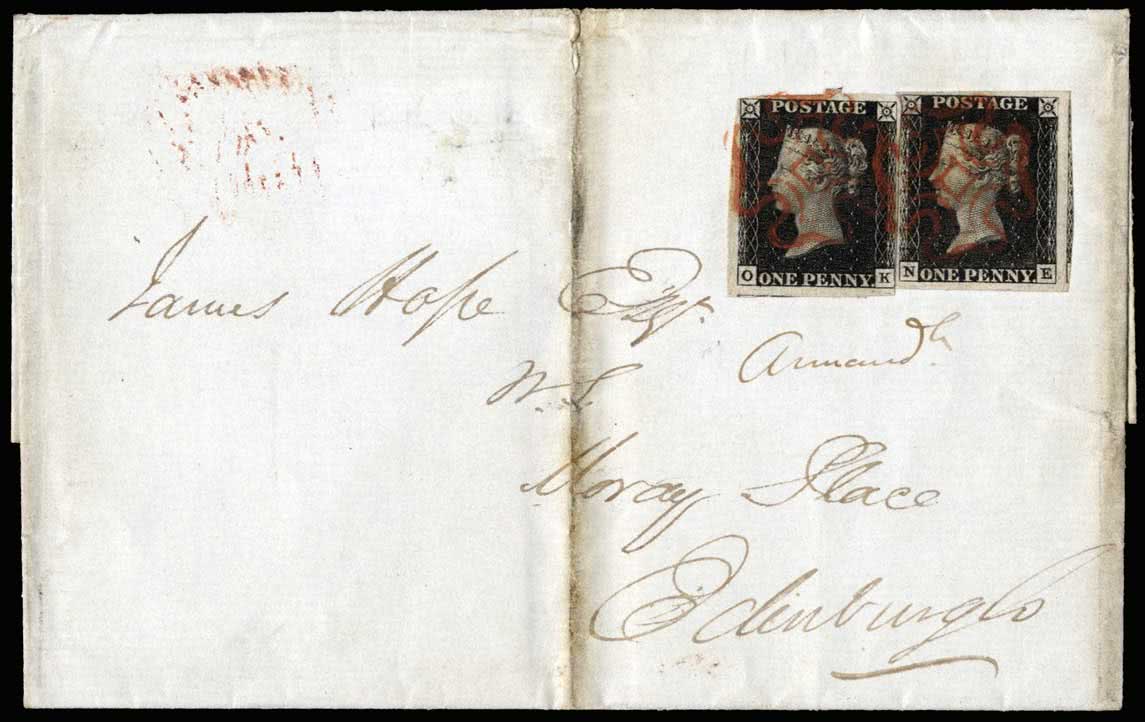 POSTAGE POSTAGE
O ONE PENNY. K N ONE PENNY. E
James Hope Esqr.
W.S.
Moray Place
Edinburgh